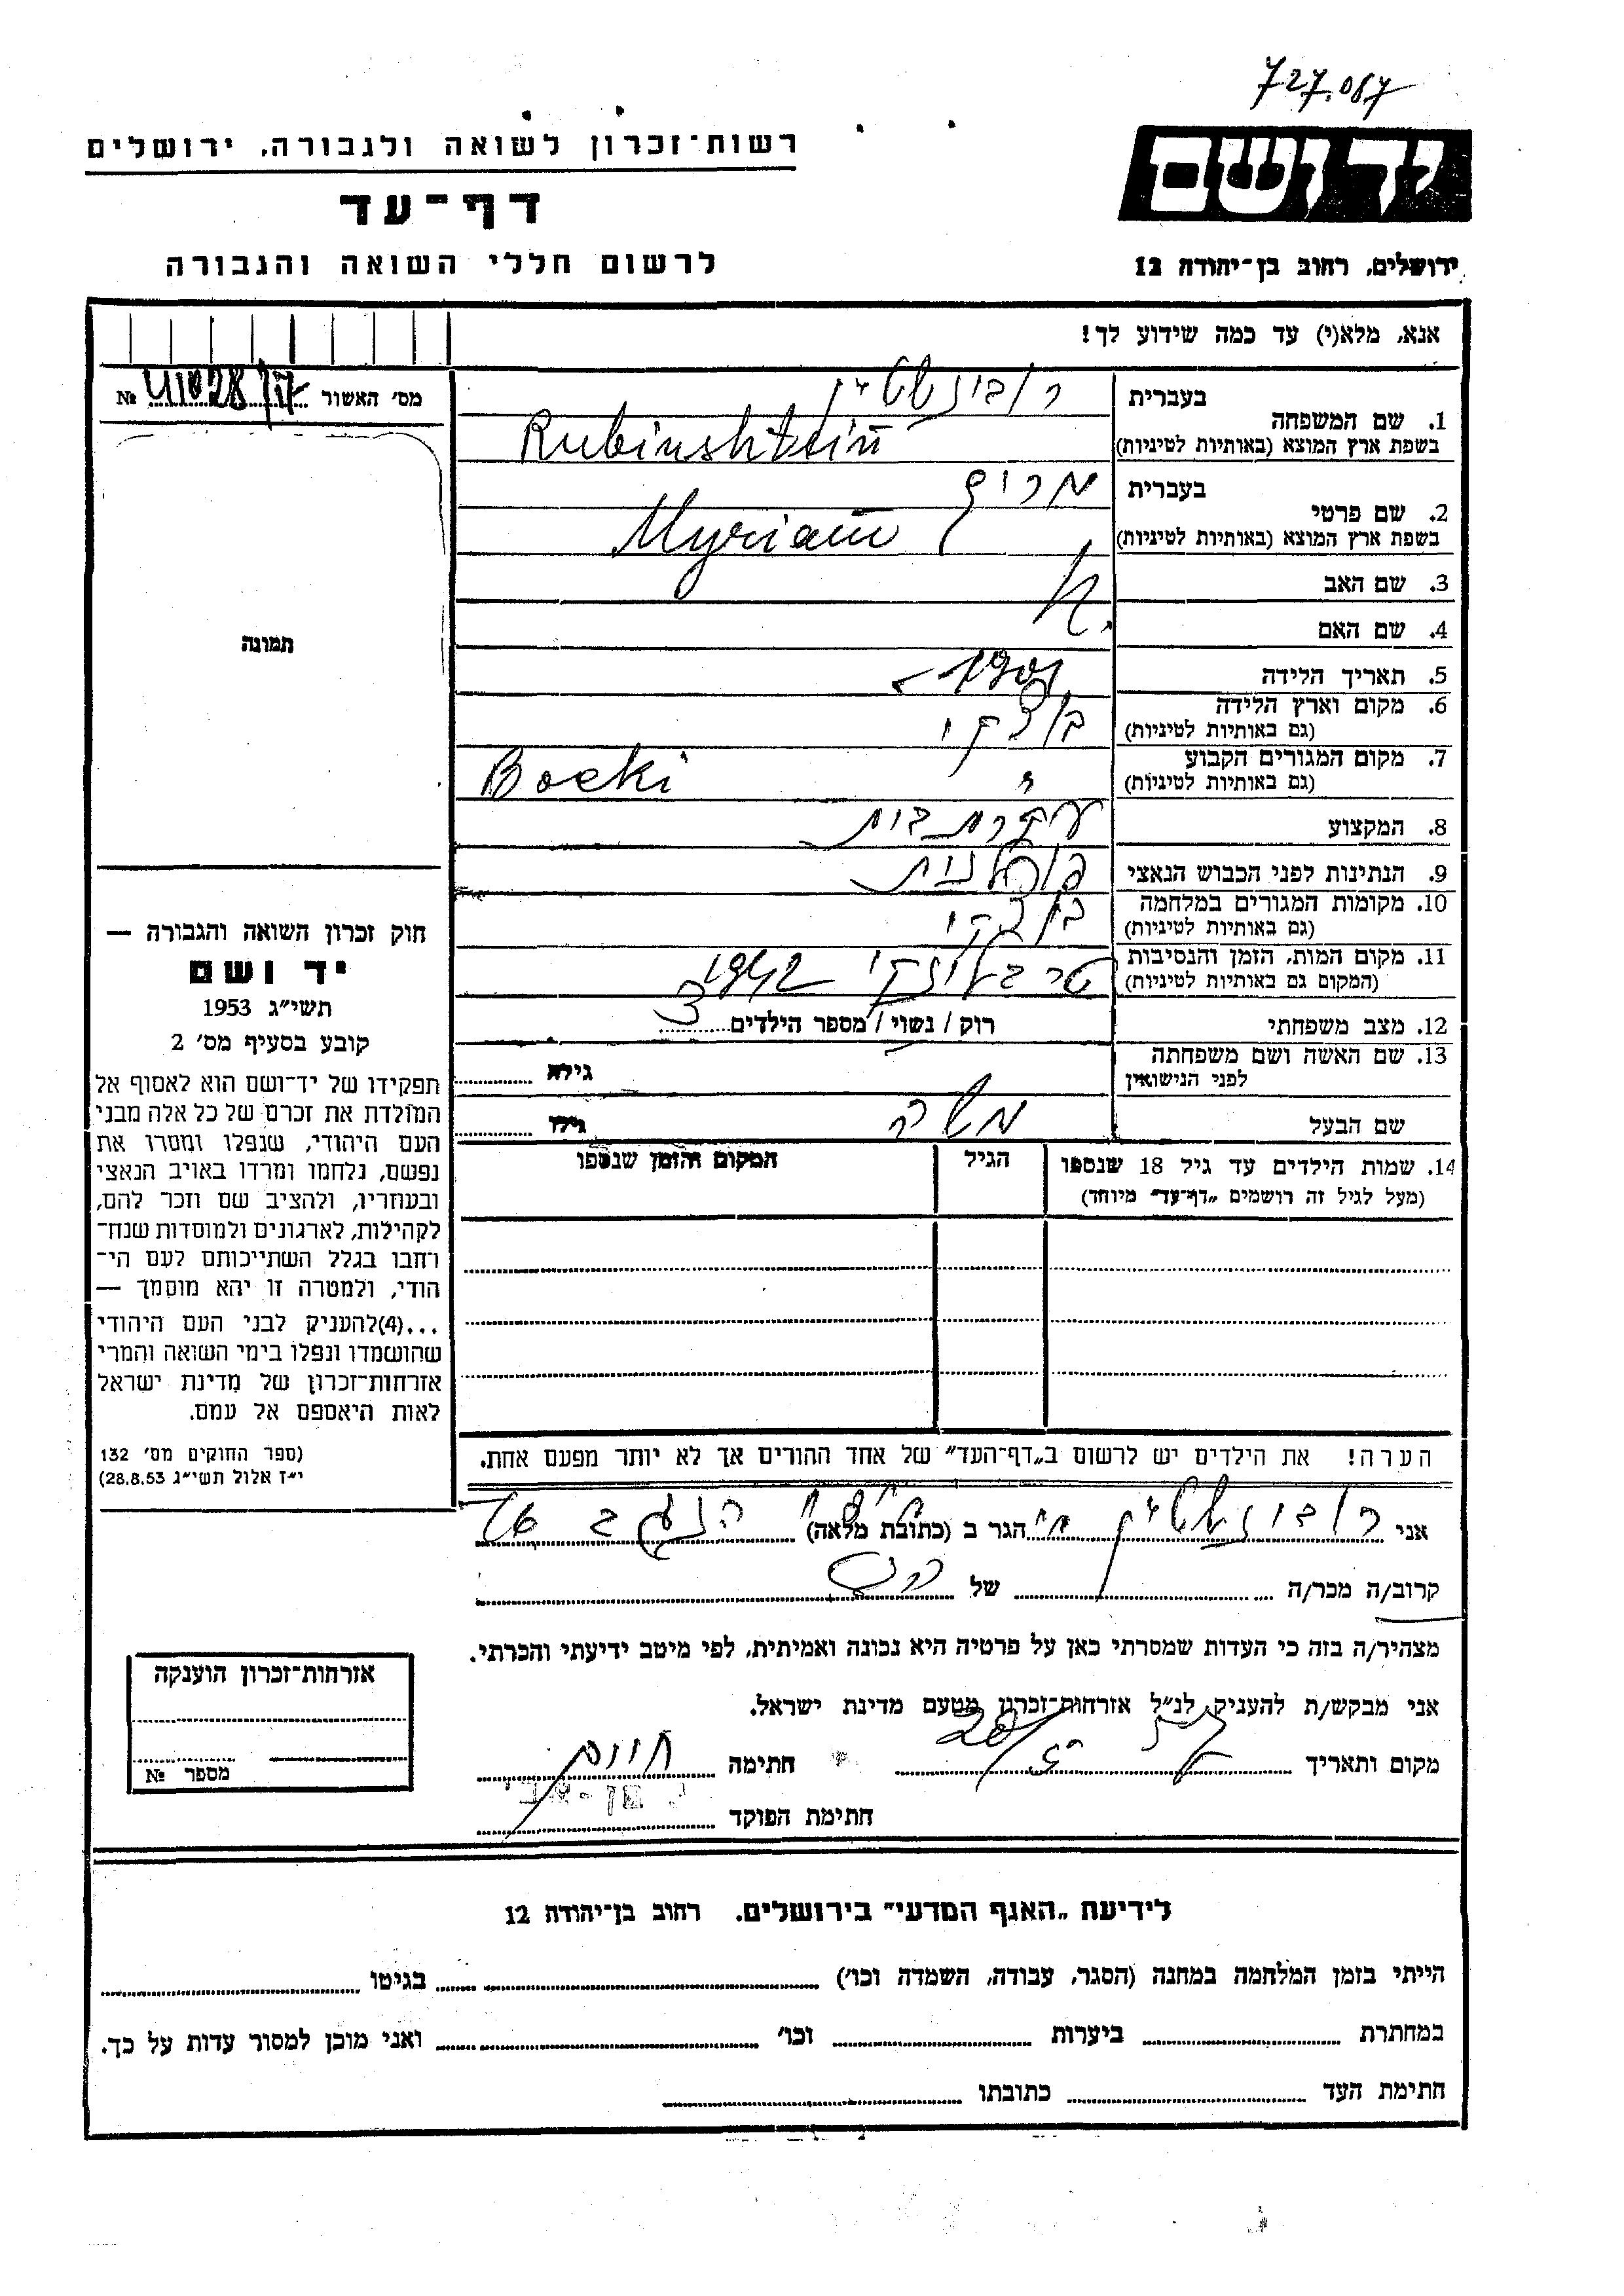 727.067
רשות־זכרון לשואה ולגבורה, ירושלים
דף־עד
לרשום חללי השואה והגבורה
יד ושם
ירושלים, רחוב בן־יהודה 12
אנא, מלא(י) עד כמה שידוע לך!
מס' האשור №
1. שם המשפחה
בעברית רובינשטיין
בשפת ארץ המוצא (באותיות לטיניות) Rubinshtein
2. שם פרטי
בעברית מרים
בשפת ארץ המוצא (באותיות לטיניות) Myriam
3. שם האב
4. שם האם
5. תאריך הלידה 1901
6. מקום וארץ הלידה (גם באותיות לטיניות) בוצקי
7. מקום המגורים הקבוע (גם באותיות לטיניות) " Bocki
8. המקצוע עקרת בית
9. הנתינות לפני הכבוש הנאצי פולנית
10. מקומות המגורים במלחמה (גם באותיות לטיניות) בוצקי
11. מקום המות, הזמן והנסיבות (המקום גם באותיות לטיניות) טרבלינקי 1942
12. מצב משפחתי רוק / נשוי / מספר הילדים 3
13. שם האשה ושם משפחתה לפני הנישואין גילה
שם הבעל משה גילו
14. שמות הילדים עד גיל 18 שנספו
(מעל לגיל זה רושמים „דף־עד" מיוחד)
הגיל
המקום והזמן שנספו
הערה! את הילדים יש לרשום ב„דף־העד" של אחד ההורים אך לא יותר מפעם אחת.
תמונה
חוק זכרון השואה והגבורה —
יד ושם
תשי"ג 1953
קובע בסעיף מס' 2
תפקידו של יד־ושם הוא לאסוף אל
המולדת את זכרם של כל אלה מבני
העם היהודי, שנפלו ומסרו את
נפשם, נלחמו ומרדו באויב הנאצי
ובעוזריו, ולהציב שם וזכר להם,
לקהילות, לארגונים ולמוסדות שנח־
רחבו בגלל השתייכותם לעם הי־
הודי, ולמטרה זו יהא מוסמך —
...(4)להעניק לבני העם היהודי
שהושמדו ונפלו בימי השואה והמרי
אזרחות־זכרון של מדינת ישראל
לאות היאספם אל עמם.
(ספר החוקים מס' 132
י"ז אלול תשי"ג 28.8.53)
אני רובינשטיין הגר ב (כתובת מלאה)
קרוב/ה מכר/ה של
מצהיר/ה בזה כי העדות שמסרתי כאן על פרטיה היא נכונה ואמיתית, לפי מיטב ידיעתי והכרתי.
אני מבקש/ת להעניק לנ"ל אזרחות־זכרון מטעם מדינת ישראל.
מקום ותאריך חתימה
חתימת הפוקד
אזרחות־זכרון הוענקה
מספר №
לידיעת „האגף המדעי" בירושלים. רחוב בן־יהודה 12
הייתי בזמן המלחמה במחנה (הסגר, עבודה, השמדה וכו') בגיטו
במחתרת ביערות וכו' ואני מוכן למסור עדות על כך.
חתימת העד כתובתו